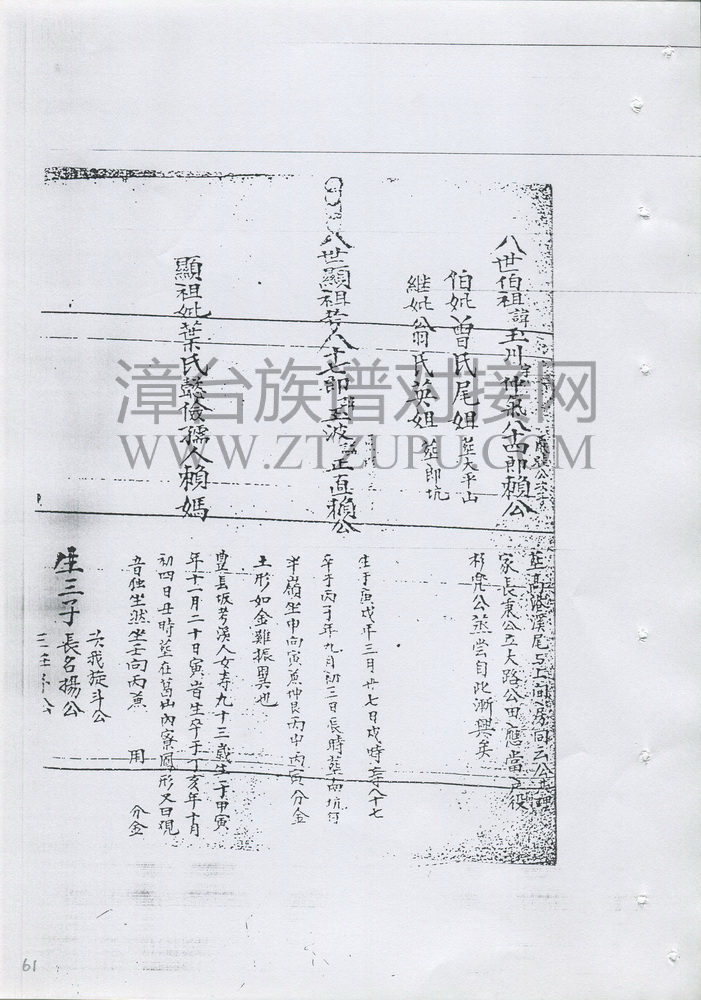 八世伯祖諱玉川字仲氣八十四郎賴公
伯妣曾氏尾姐 葬大平山
继妣翁氏英姐 葬郎坑
八世顯祖考八十七郎諱玉波 正直賴公
顯祖妣葉氏懿儉孺人賴媽
葬高港溪尾与上间房同云公
家長東公立大路公田應當户役
杉虎公蒸嘗自此漸興矣
生于庚戌年三日廿七日戌時 寿八十七
卒于丙子年九月初三日辰時葬南坑
半嶺坐申向寅兼仲艮丙申丙寅分金
土形如金雞振翼也
豊县坂考溪人女寿九十三歲生于甲寅
年十一月二十日寅旹生卒于丁亥年十月
初四日丑時葬在葛山內寮鳳形又曰現
音独坐然坐壬向丙兼 用 分金
生三子 長名揚公
次我旋斗公
漳台族谱对接网
WWW.ZTZUPU.COM
61